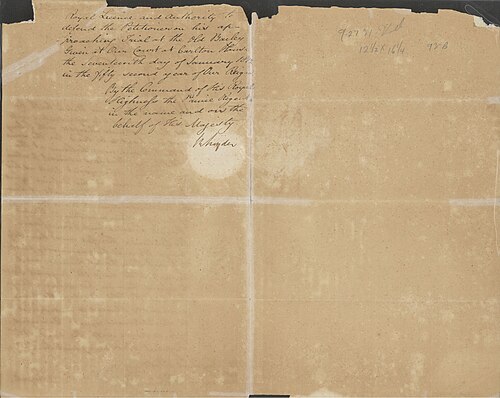 Royal Licence and Authority to
defend the Petitioner on his ap-
proaching Trial at the Old Bailey
Given at Our Court at Carlton House
the Seventeenth day of January
in the fifty second year of Our Reign
By the Command of His Royal
Highness the Prince Regent
in the name and on the
behalf of His Majesty
R Ryder